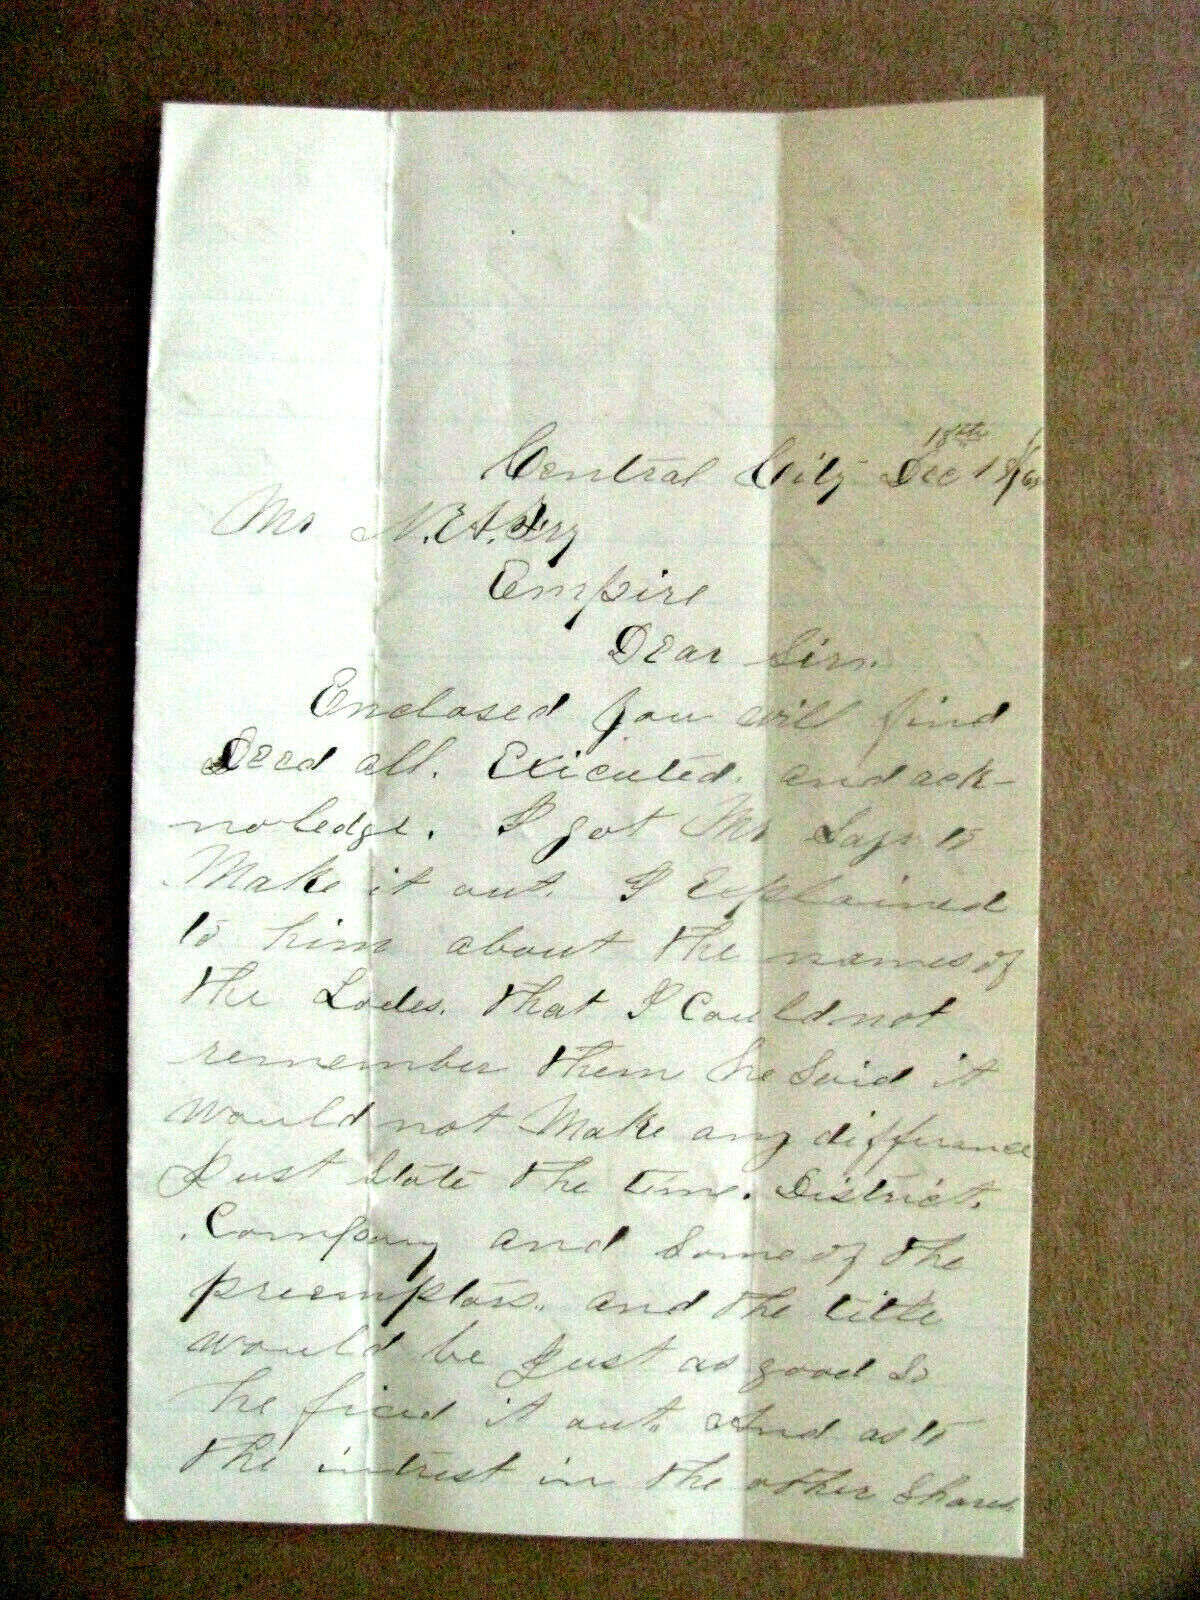 Central City Dec 18th
Mr N.
Empire
Dear Sir.
Enclosed you will find
Deed all. Exicuted. and ack-
noledge. I got Mr to
Make it out. I Explained
to him about the names of
the Lodes. that I Could not
remember them he Said it
would not Make any differance
Just State the time. District.
Company and Some of the
preemptors. and the title
would be Just as good So
he fixed it out. And as to
the intrest in the other Shares